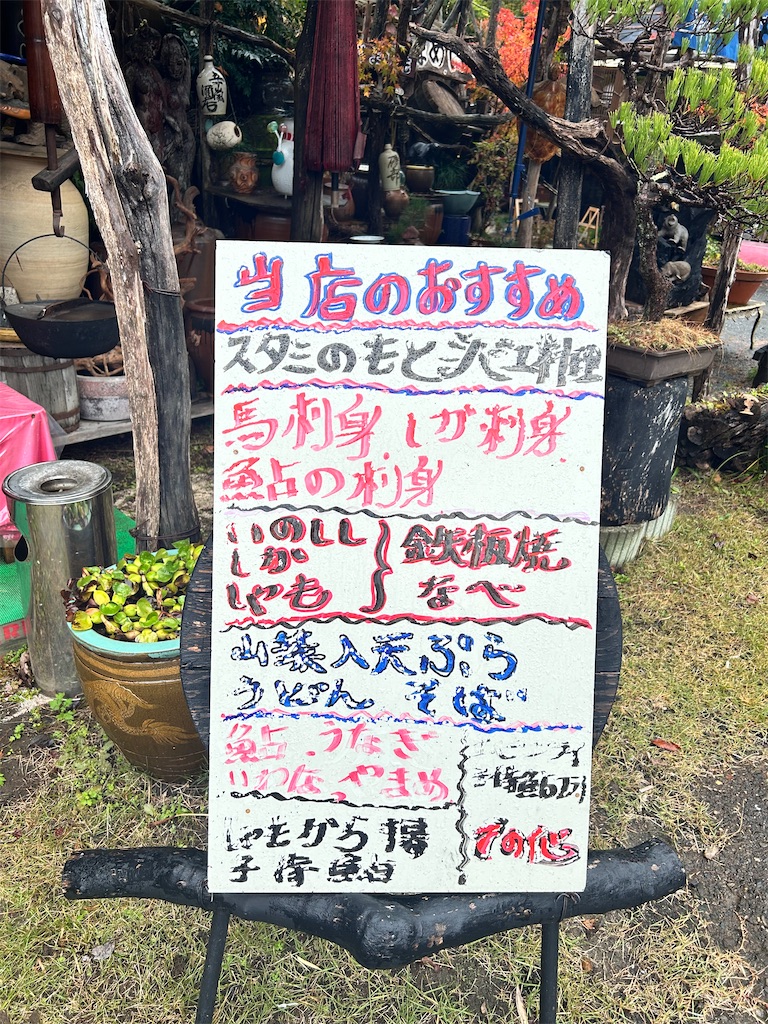 当店のおすすめ
スタミのもと
馬刺身 しか刺身
鮎の刺身
いのしし
しか
しゃも
鉄板焼
なべ
山菜入天ぷら
うどん そば
鮎.うなぎ
いわな.やまめ
しゃもから揚
子持鮎
その他